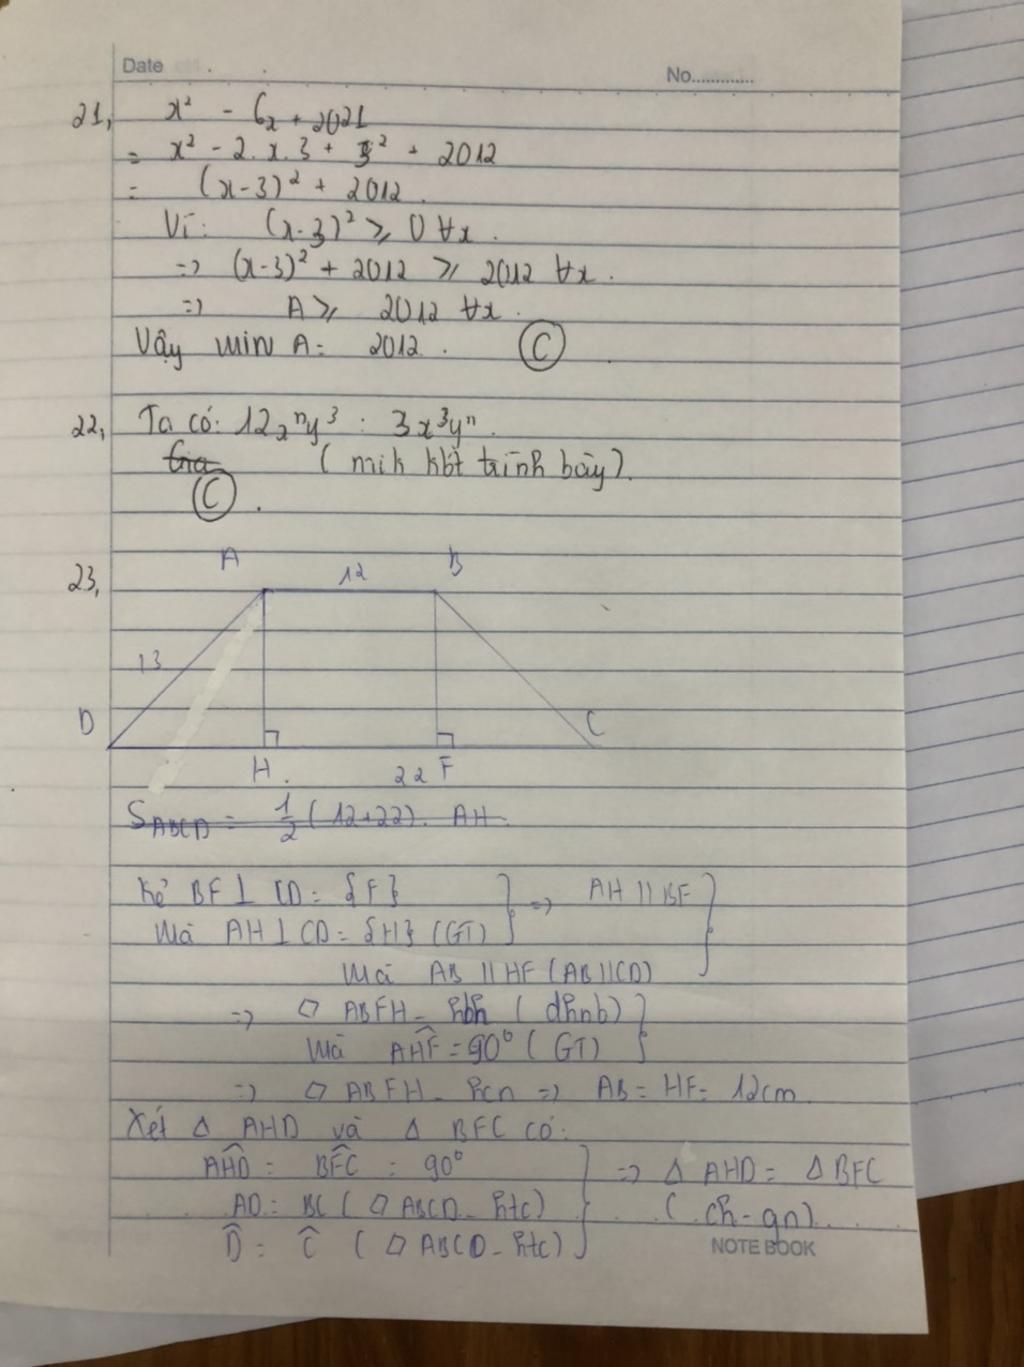 Date
No.............
21, x² - 6x + 2021
= x² - 2.x.3 + 3² + 2012
= (x-3)² + 2012.
Vì: (x-3)² ⩾ 0 ∀x.
=> (x-3)² + 2012 ⩾ 2012 ∀x.
=> A ⩾ 2012 ∀x.
Vậy min A = 2012. C
22, Ta có: 12xⁿy³ : 3x³yⁿ.
(mik kbt trình bày).
C.
A 12 B
23,
13
D C
H. 22 F
S_ABCD = 1/2 (12+22). AH.
Kẻ BF ⊥ CD = {F} } => AH // BF }
Mà AH ⊥ CD = {H} (GT)
Mà AB // HF (AB // CD)
=> ▱ ABFH - hbh (dhnb) }
Mà AHF̂ = 90° (GT)
=> ▱ ABFH - hcn => AB = HF = 12cm
Xét Δ AHD và Δ BFC có:
AHD̂ = BFĈ = 90° } => Δ AHD = Δ BFC
AD = BC (▱ ABCD - htc) (ch-gn)
D̂ = Ĉ (▱ ABCD - htc)
NOTE BOOK